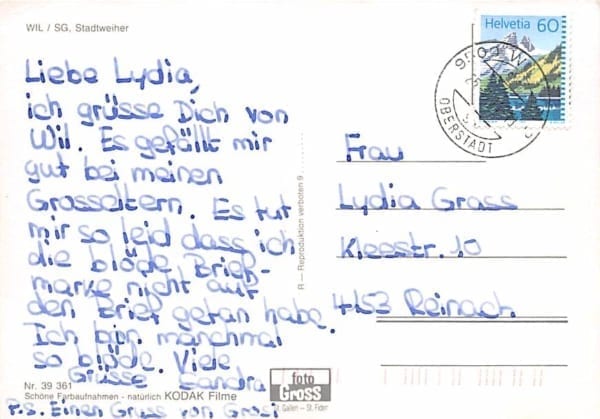 WIL / SG, Stadtweiher
Liebe Lydia,
ich grüsse Dich von
Wil. Es gefällt mir
gut bei meinen
Grosseltern. Es tut
mir so leid dass ich
die blöde Brief-
marke nicht auf
den Brief getan habe.
Ich bin manchmal
so blöde. Viele
Grüsse Sandra
P.S. Einen Gruss von Grosi
Nr. 39 361
Schöne Farbaufnahmen - natürlich KODAK Filme
R — Reproduktion verboten 9
foto
Gross
St. Gallen – St. Fiden
Helvetia 60
9500 WIL
OBERSTADT
Frau
Lydia Grass
Kleestr. 10
4153 Reinach